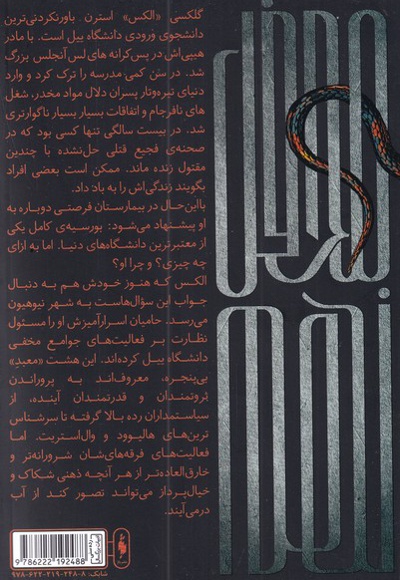 گلکسی «الکس» استرن، باورنکردنی‌ترین
دانشجوی ورودی دانشگاه ییل است. با مادر
هیپی‌اش در پس‌کرانه های لس آنجلس بزرگ
شد. در سنن کمی مدرسه را ترک کرد و وارد
دنیای تیره‌وتار پسران دلال مواد مخدر، شغل
های نافرجام و اتفاقات بسیار بسیار ناگوارتری
شد. در بیست سالگی تنها کسی بود که در
صحنه‌ی فجیع قتلی حل‌نشده با چندین
مقتول زنده ماند. ممکن است بعضی افراد
بگویند زندگی‌اش را به باد داد.
بااین‌حال در بیمارستان فرصتی دوباره به
او پیشنهاد می‌شود: بورسیه‌ی کامل یکی
از معتبرترین دانشگاه‌های دنیا. اما به ازای
چه چیزی؟ و چرا او؟
الکس که هنوز خودش هم به دنبال
جواب این سؤال‌هاست به شهر نیوهیون
می‌رسد. حامیان اسرارآمیزش او را مسئول
نظارت بر فعالیت‌های جوامع مخفی
دانشگاه ییل کرده‌اند. این هشت «معبد»
بی‌پنجره، معروف‌اند به پروراندن
ثروتمندان و قدرتمندان آینده، از
سیاستمداران رده بالا گرفته تا سرشناس
ترین‌های هالیوود و وال‌استریت. اما
فعالیت‌های فرقه‌های‌شان شرورانه‌تر و
خارق‌العاده‌تر از هر آنچه ذهنی شکاک و
خیال‌پرداز می‌تواند تصور کند از آب
درمی‌آیند.
9 786222 192488
شابک: ۸-۲۴۸-۲۱۹-۶۲۲-۹۷۸